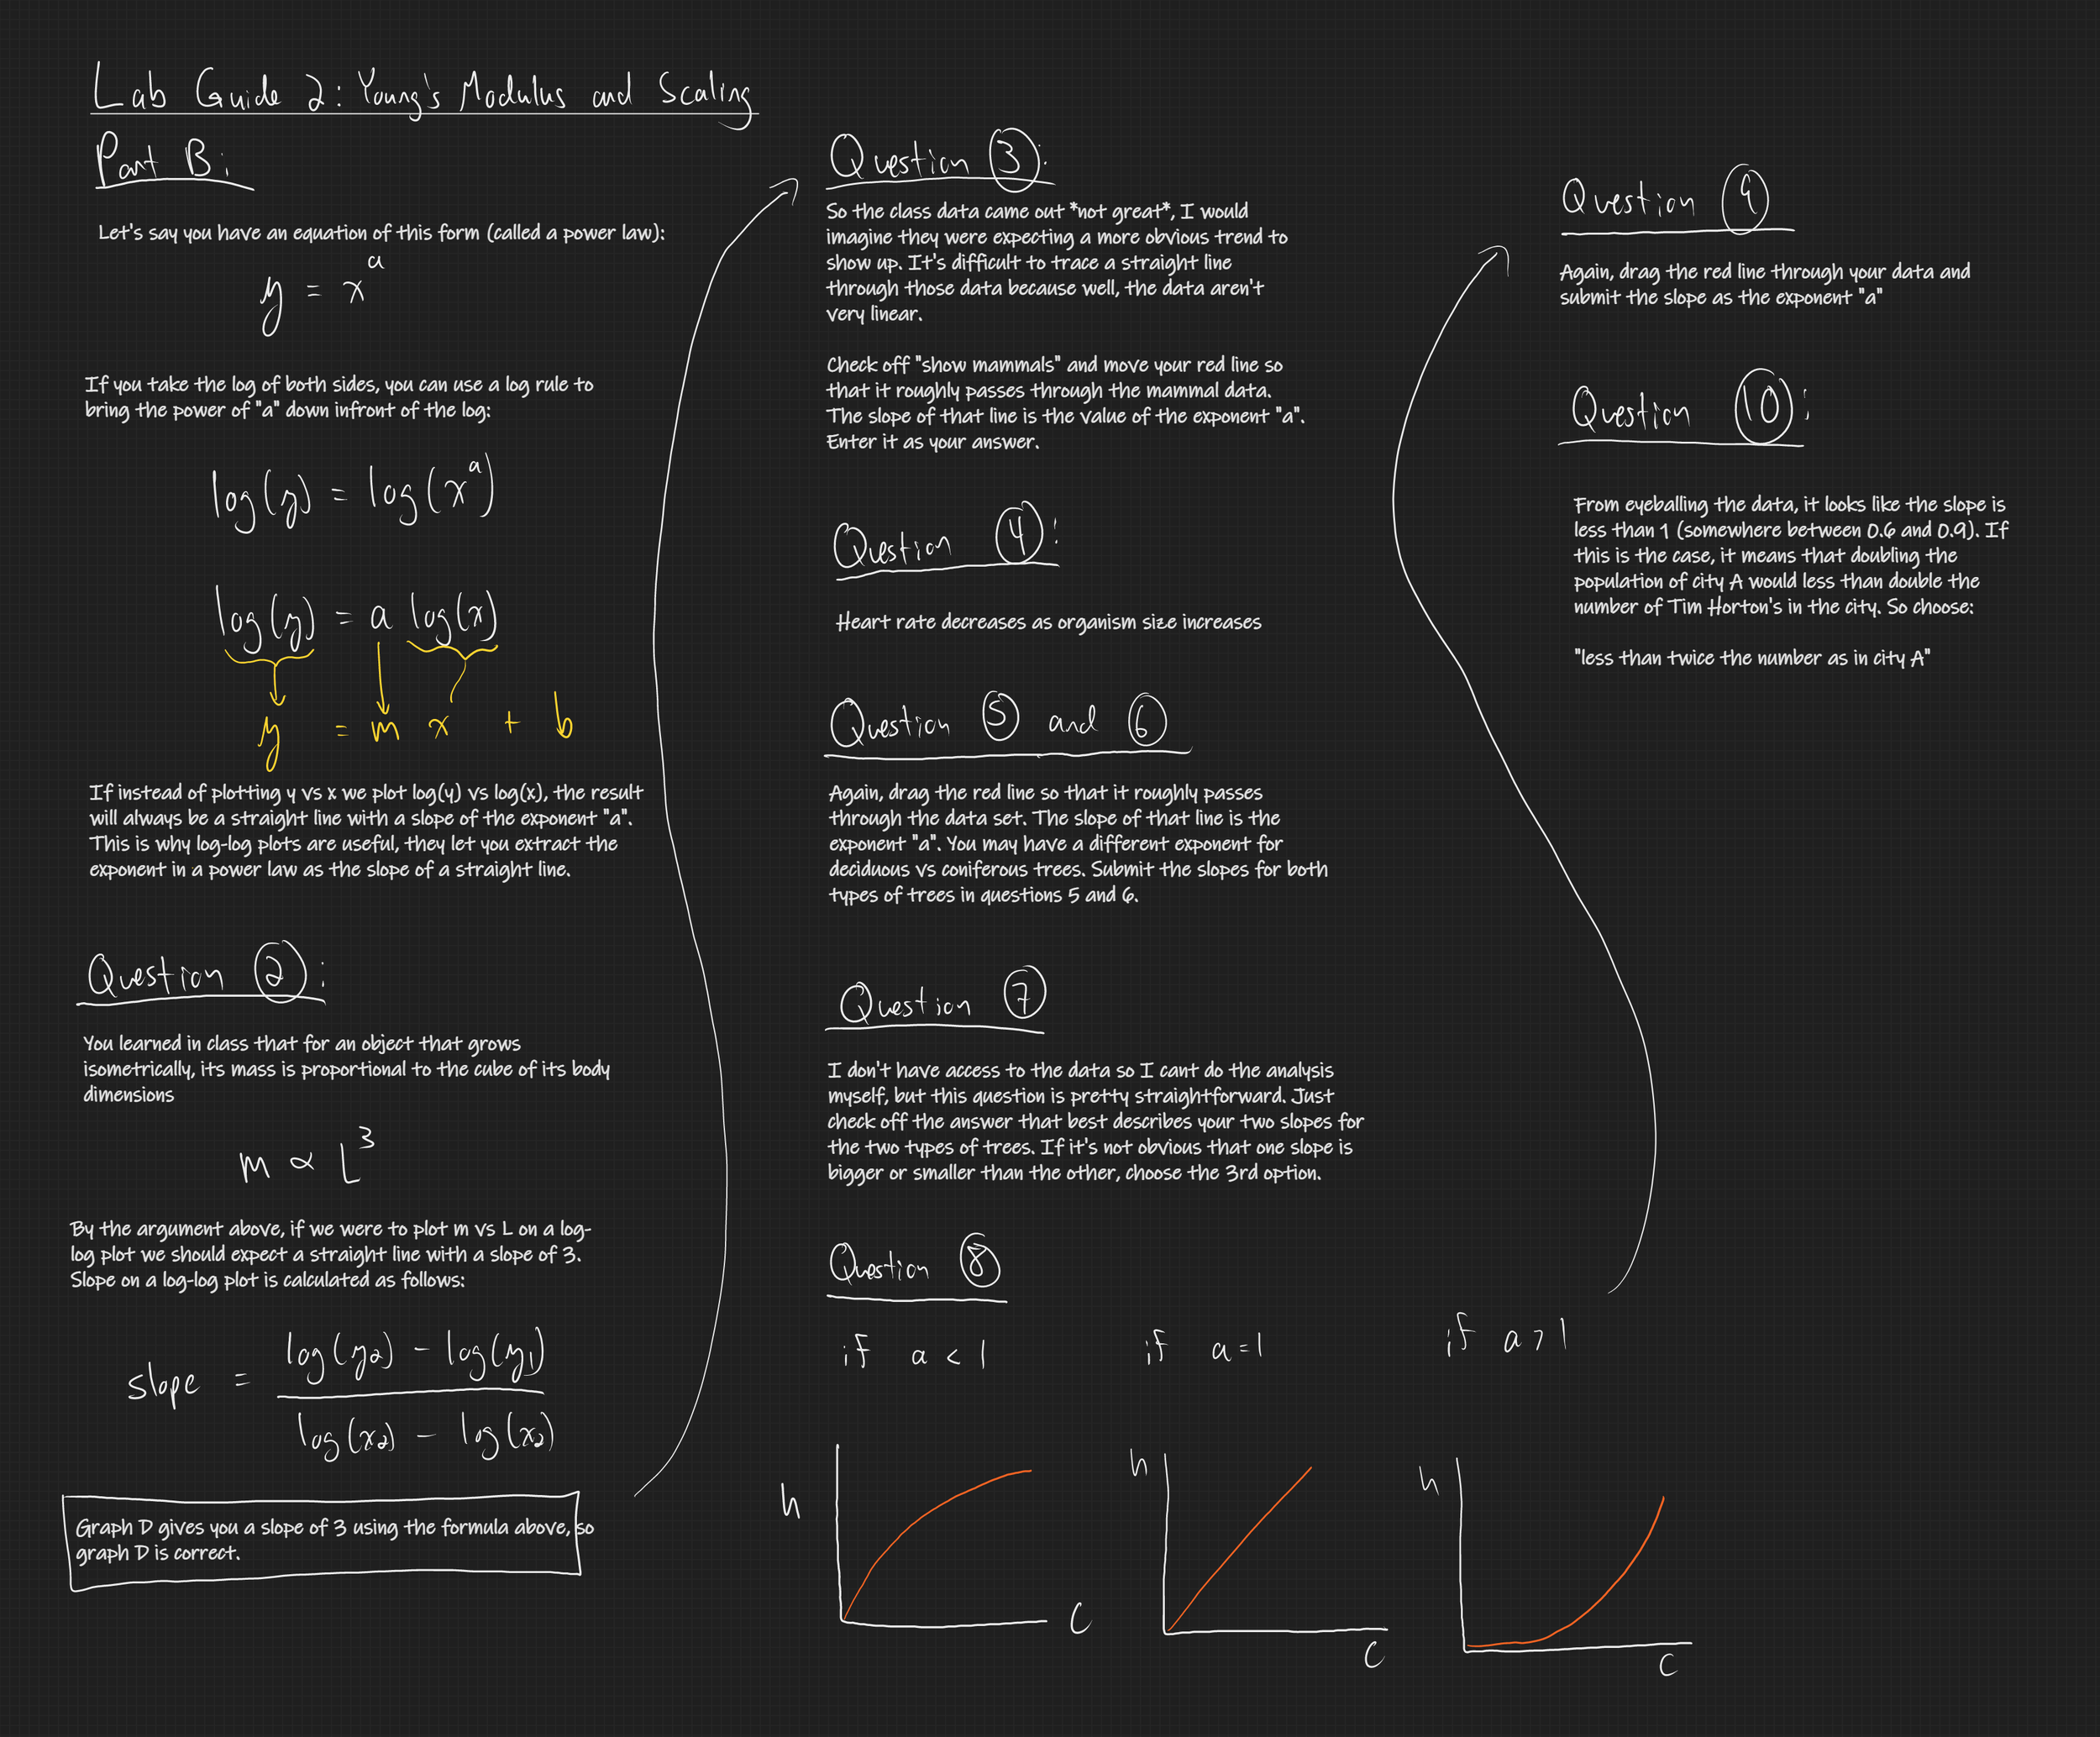 Lab Guide 2: Young's Modulus and Scaling
Part B:
Let's say you have an equation of this form (called a power law):
y = x^a
If you take the log of both sides, you can use a log rule to
bring the power of "a" down infront of the log:
log(y) = log(x^a)
log(y) = a log(x)
y = m x + b
If instead of plotting y vs x we plot log(y) vs log(x), the result
will always be a straight line with a slope of the exponent "a".
This is why log-log plots are useful, they let you extract the
exponent in a power law as the slope of a straight line.
Question 2:
You learned in class that for an object that grows
isometrically, its mass is proportional to the cube of its body
dimensions
m ∝ L^3
By the argument above, if we were to plot m vs L on a log-
log plot we should expect a straight line with a slope of 3.
Slope on a log-log plot is calculated as follows:
slope = (log(y2) - log(y1)) / (log(x2) - log(x2))
Graph D gives you a slope of 3 using the formula above, so
graph D is correct.
Question 3:
So the class data came out *not great*, I would
imagine they were expecting a more obvious trend to
show up. It's difficult to trace a straight line
through those data because well, the data aren't
very linear.
Check off "show mammals" and move your red line so
that it roughly passes through the mammal data.
The slope of that line is the value of the exponent "a".
Enter it as your answer.
Question 4:
Heart rate decreases as organism size increases
Question 5 and 6
Again, drag the red line so that it roughly passes
through the data set. The slope of that line is the
exponent "a". You may have a different exponent for
deciduous vs coniferous trees. Submit the slopes for both
types of trees in questions 5 and 6.
Question 7
I don't have access to the data so I cant do the analysis
myself, but this question is pretty straightforward. Just
check off the answer that best describes your two slopes for
the two types of trees. If it's not obvious that one slope is
bigger or smaller than the other, choose the 3rd option.
Question 8
if a < 1
if a = 1
if a > 1
h
C
h
C
h
C
Question 9
Again, drag the red line through your data and
submit the slope as the exponent "a"
Question 10:
From eyeballing the data, it looks like the slope is
less than 1 (somewhere between 0.6 and 0.9). If
this is the case, it means that doubling the
population of city A would less than double the
number of Tim Horton's in the city. So choose:
"less than twice the number as in city A"